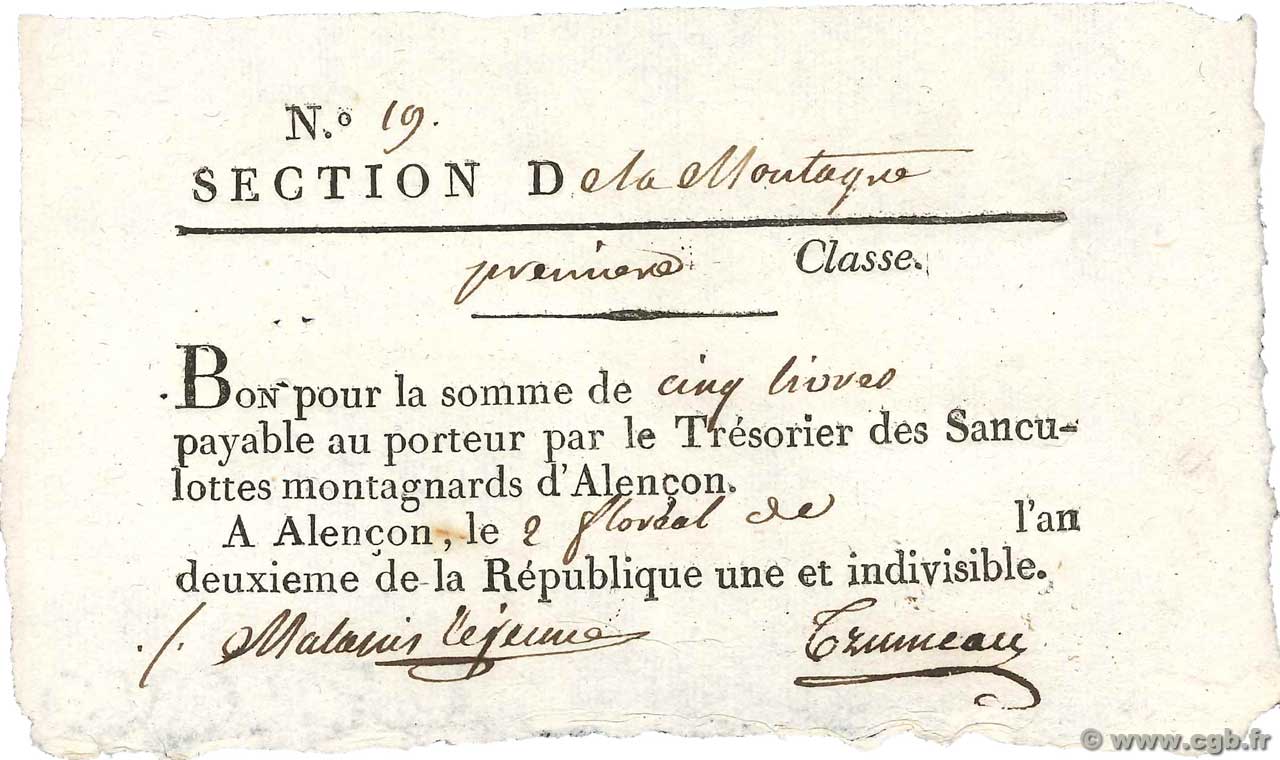 N.o 19.
SECTION De la Montagne
premiere Classe.
BON pour la somme de cinq livres
payable au porteur par le Trésorier des Sancu-
lottes montagnards d'Alençon.
A Alençon, le 2 floréal de l'an
deuxieme de la République une et indivisible.
Malassis lejeune
© www.cgb.fr